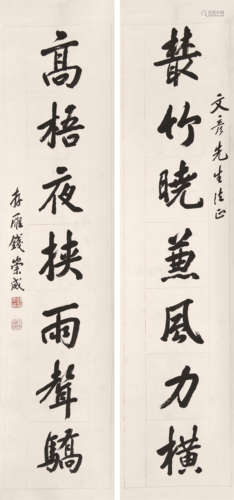 叢竹曉兼風力橫
文彥先生法正
高梧夜挾雨聲驕
存雁錢崇威